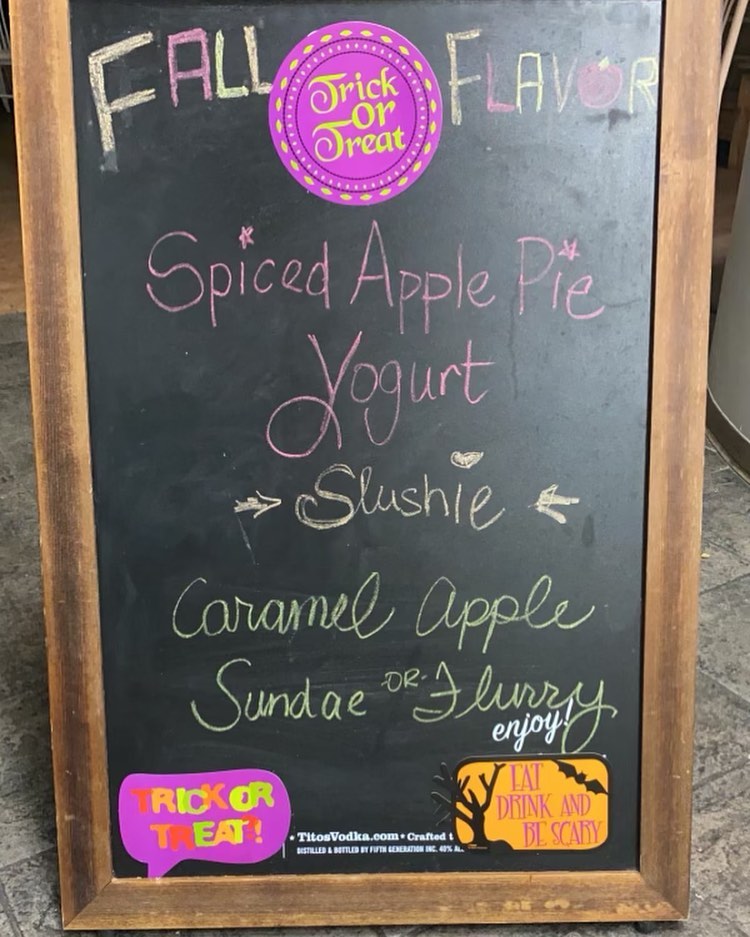 FALL FLAVOR
Trick
or
Treat
Spiced Apple Pie
Yogurt
Slushie
Caramel Apple
Sundae -OR- Flurry
enjoy!
TRICK OR
TREAT?!
EAT
DRINK AND
BE SCARY
• TitosVodka.com • Crafted t
DISTILLED & BOTTLED BY FIFTH GENERATION INC. 40% AL